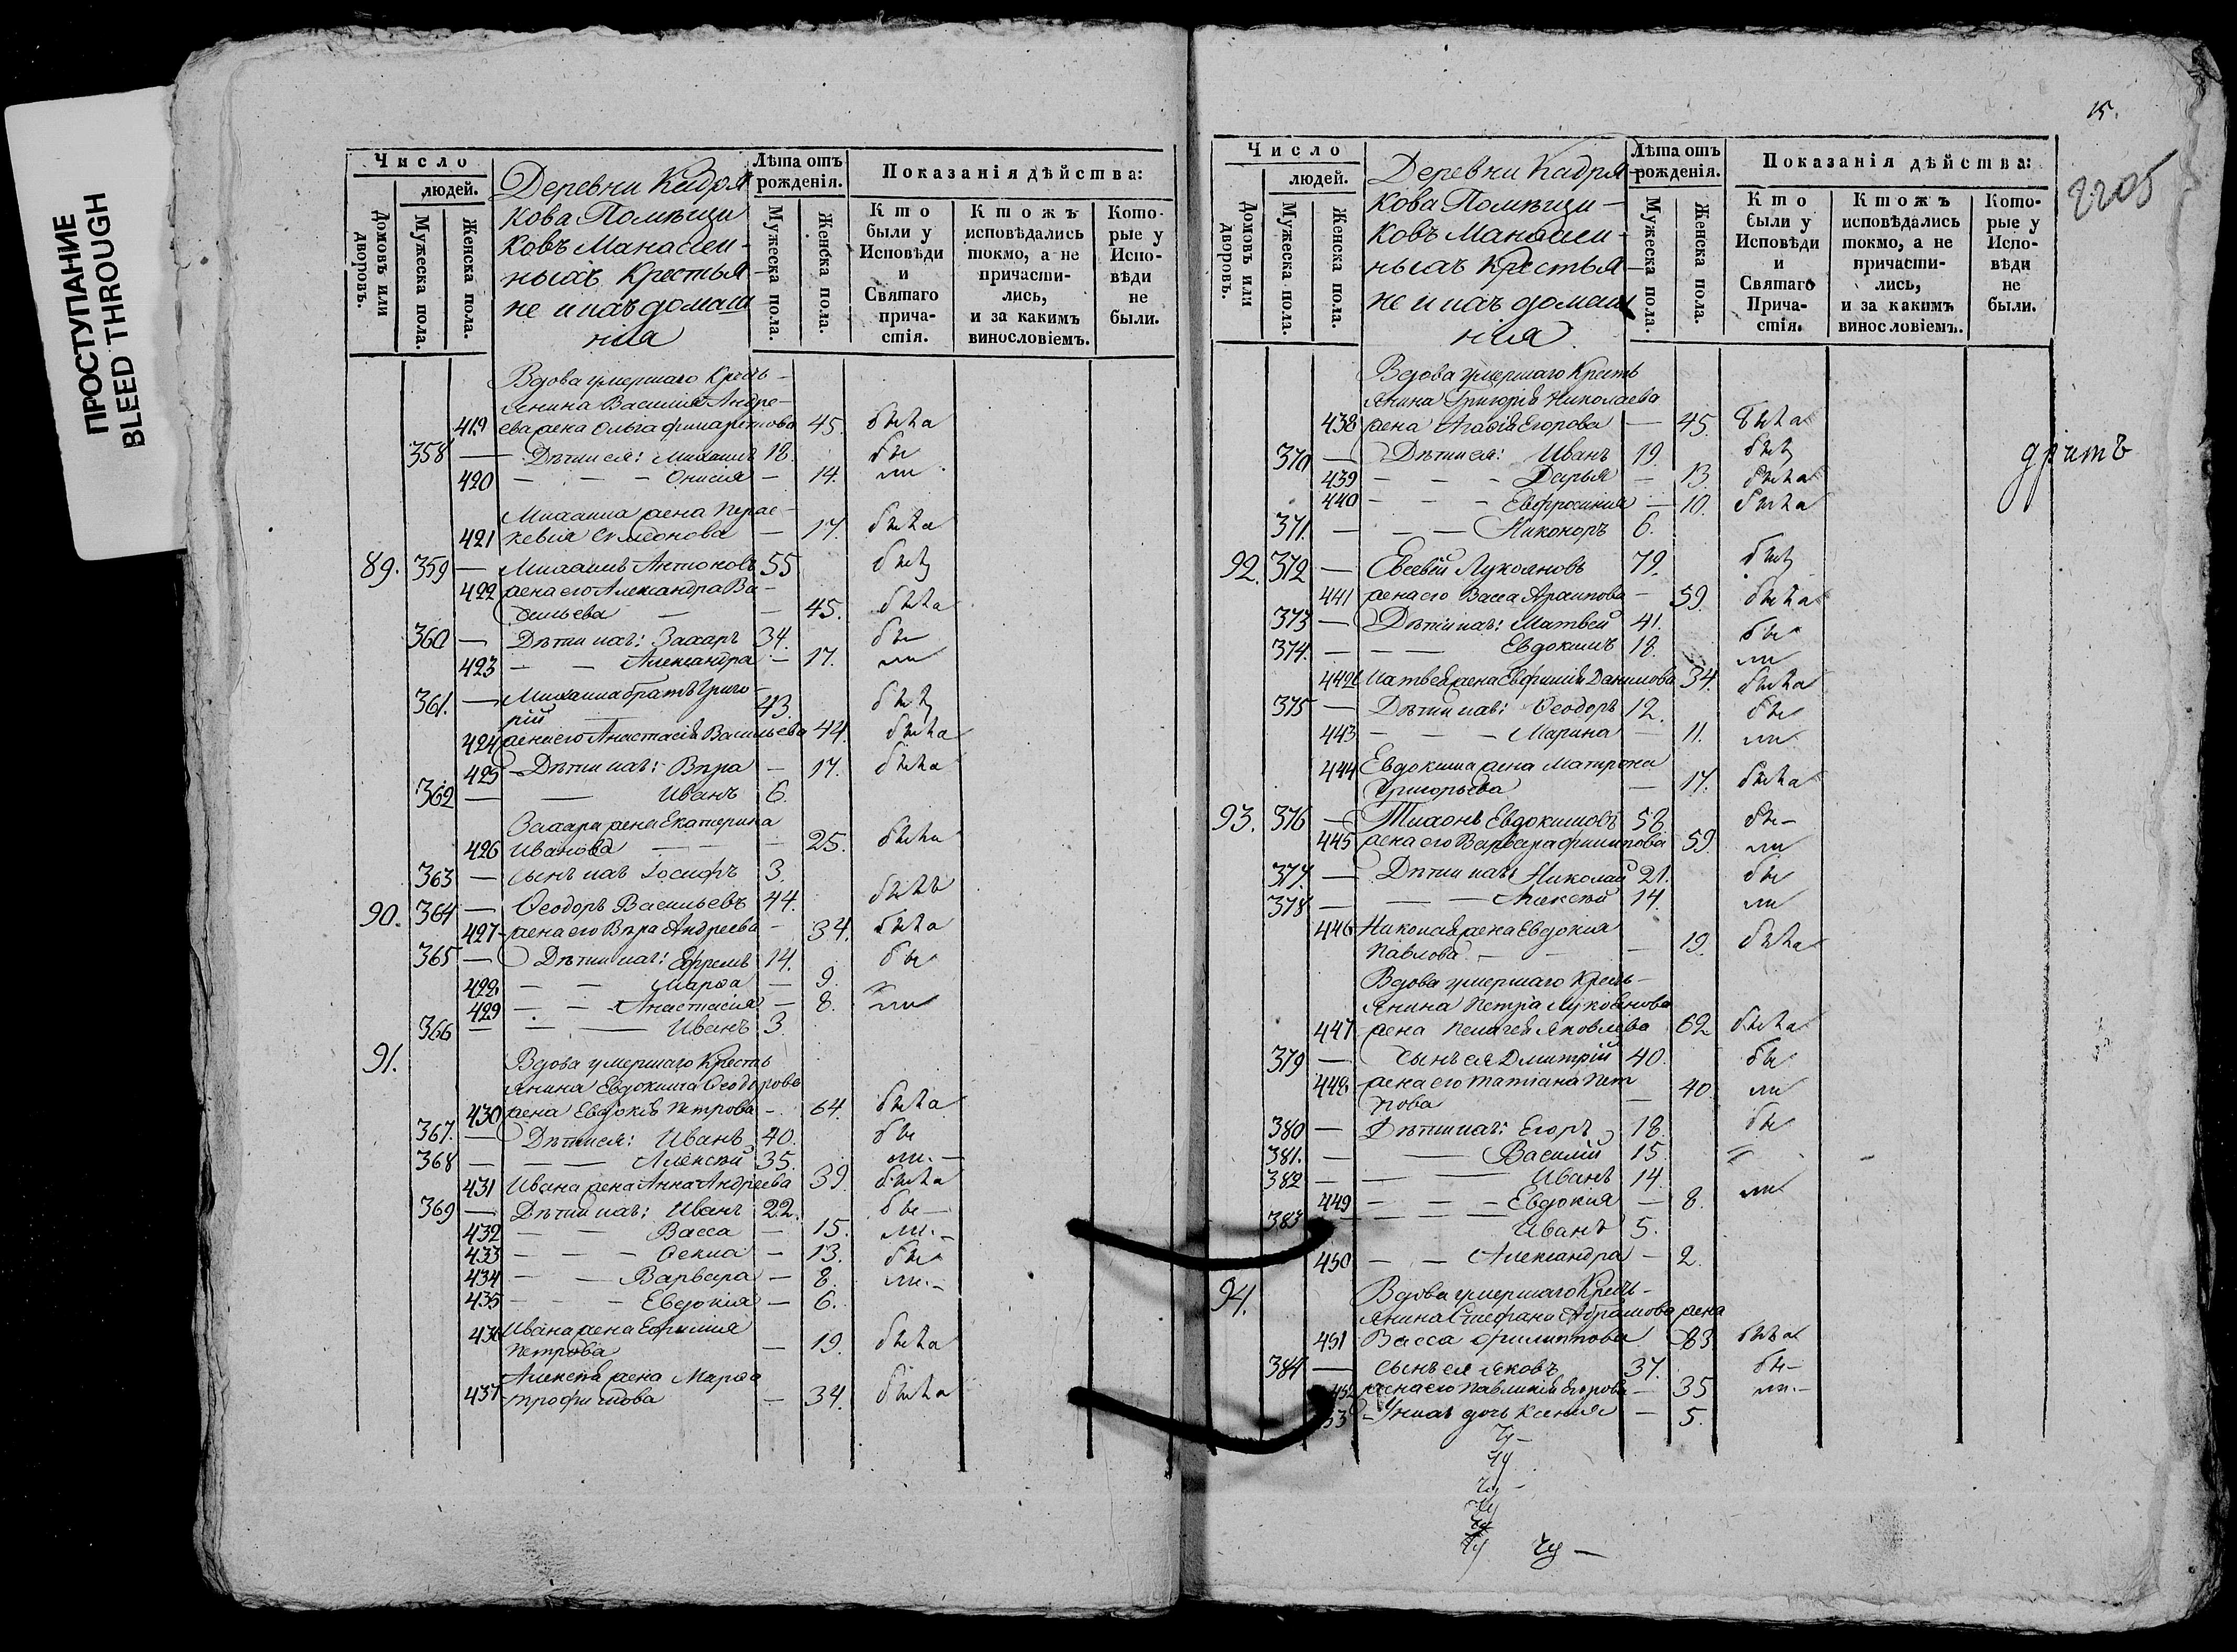 ПРОСТУПАНИЕ
BLEED THROUGH
Число
людей.
Домовъ или дворовъ.
Мужеска пола.
Женска пола.
Деревни Кадря
кова Помѣщи
ковъ Манасеи-
ныхъ Крестья-
не и ихъ домаш
нія
Лѣта отъ рожденія.
Мужеска пола.
Женска пола.
Показанія дѣйства:
Кто были у Исповѣди и Святаго прича-стія.
Ктожъ исповѣдались токмо, а не причасти-лись, и за какимъ винословіемъ.
Кото-рые у Испо-вѣди не были.
Вдова умершаго Кресть-
янина Василія Андре-
419 ева жена Ольга Филаретова 45. была
358 — Дѣти ея: Михаилъ 18. бы
420 — — — Онисія — 14. ли
Михаила жена Парас-
421 кевія Симеонова — 17. была
89. 359 — Михаилъ Антоновъ 55 былъ
422 жена его Александра Ва-
сильева — — 45. была
360 — Дѣти ихъ: Захаръ 34. бы
423 — — Александра — 17. ли
361. — Михаила братъ Григо-
рій 43. былъ
424 жена его Анастасія Васильева 44. была
425 — Дѣти ихъ: Вѣра — 17. была
362 — — Иванъ 6.
Захара жена Екатерина
426 Иванова — — — 25. была
363 — сынъ ихъ Іосифъ 3.
90. 364 — Ѳеодоръ Васильевъ 44. былъ
427 жена его Вѣра Андреева — 34. была
365 — Дѣти ихъ: Ефремъ 14. бы
428 — — Марѳа — 9.
429 — — Анастасія — 8. ли
366 — — — Иванъ 3.
91. Вдова умершаго Кресть
янина Евдокима Ѳеодорова
430 жена Евдокія Петрова — 64. была
367. — Дѣти ея: Иванъ 40. бы
368 — — — Алексѣй 35. ли. —
431 Ивана жена Анна Андреева 39. была
369 — Дѣти ихъ: Иванъ 22. бы —
432 — — Васса — 15. ли. —
433 — — — Ѳекла — 13. бы
434 — — Варвара — 8. ли. —
435 — — — Евдокія — 6.
436 Ивана жена Ефимия
Петрова — 19. была
Алексѣя жена Марѳа
437 Трофимова — 34. была
15.
2205
Число
людей.
Домовъ или дворовъ.
Мужеска пола.
Женска пола.
Деревни Кадря-
кова Помѣщи-
ковъ Манасеи-
ныхъ Крестья-
не и ихъ домаш
нія.
Лѣта отъ рожденія.
Мужеска пола.
Женска пола.
Показанія дѣйства:
Кто были у Исповѣди и Святаго Прича-стія.
Ктожъ исповѣдались токмо, а не причасти-лись, и за какимъ винословіемъ.
Кото-рые у Испо-вѣди не были.
Вдова умершаго Кресть
янина Григорія Николаева
438 жена Агафія Егорова — 45. была
370 — Дѣти ея: Иванъ 19. былъ
439 — — — Дарья — 13. была
440 — — — Евфросинія — 10. была
371. — — — Никоноръ 6.
92. 372 — Евсевій Лукояновъ 79. былъ
441 жена его Васса Архипова — 59 была
373 — Дѣти ихъ: Матвей 41. бы
374. — — — Евдокимъ 18. ли
442 Матвея жена Евфимія Данилова 34. была
375 — Дѣти ихъ: Ѳеодоръ 12. бы
443 — — — Марина — 11. ли
444 Евдокима жена Матрона
Григорьева — 17. была
93. 376 — Тихонъ Евдокимовъ 58. бы —
445 жена его Варвара Филиппова 59. ли
377. — Дѣти ихъ: Николай 21. бы
378 — — — Алексѣй 14. ли
446 Николая жена Евдокія
Павлова. — — 19. была
Вдова умершаго Кресть-
янина Петра Лукоянова
447 жена Пелагея Яковлева 62 была
379 — Сынъ ея Дмитрій 40. бы
448 жена его Татіана Пет
рова — 40. ли
380 — Дѣти ихъ: Егоръ 18. бы
381. — — Василій 15.
382 — — — Иванъ 14.
449 — — — Евдокія — 8. ли
383 — — — Иванъ 5.
450 — — Александра — 2.
94. Вдова умершаго Кресть-
янина Стефана Абрамова жена
451 Васса Филиппова 83 была
384 — сынъ ея Яковъ 37. бы —
452 жена его Павликія Егорова — 35 ли. —
453 — У нихъ дочь Ксенія — 5.